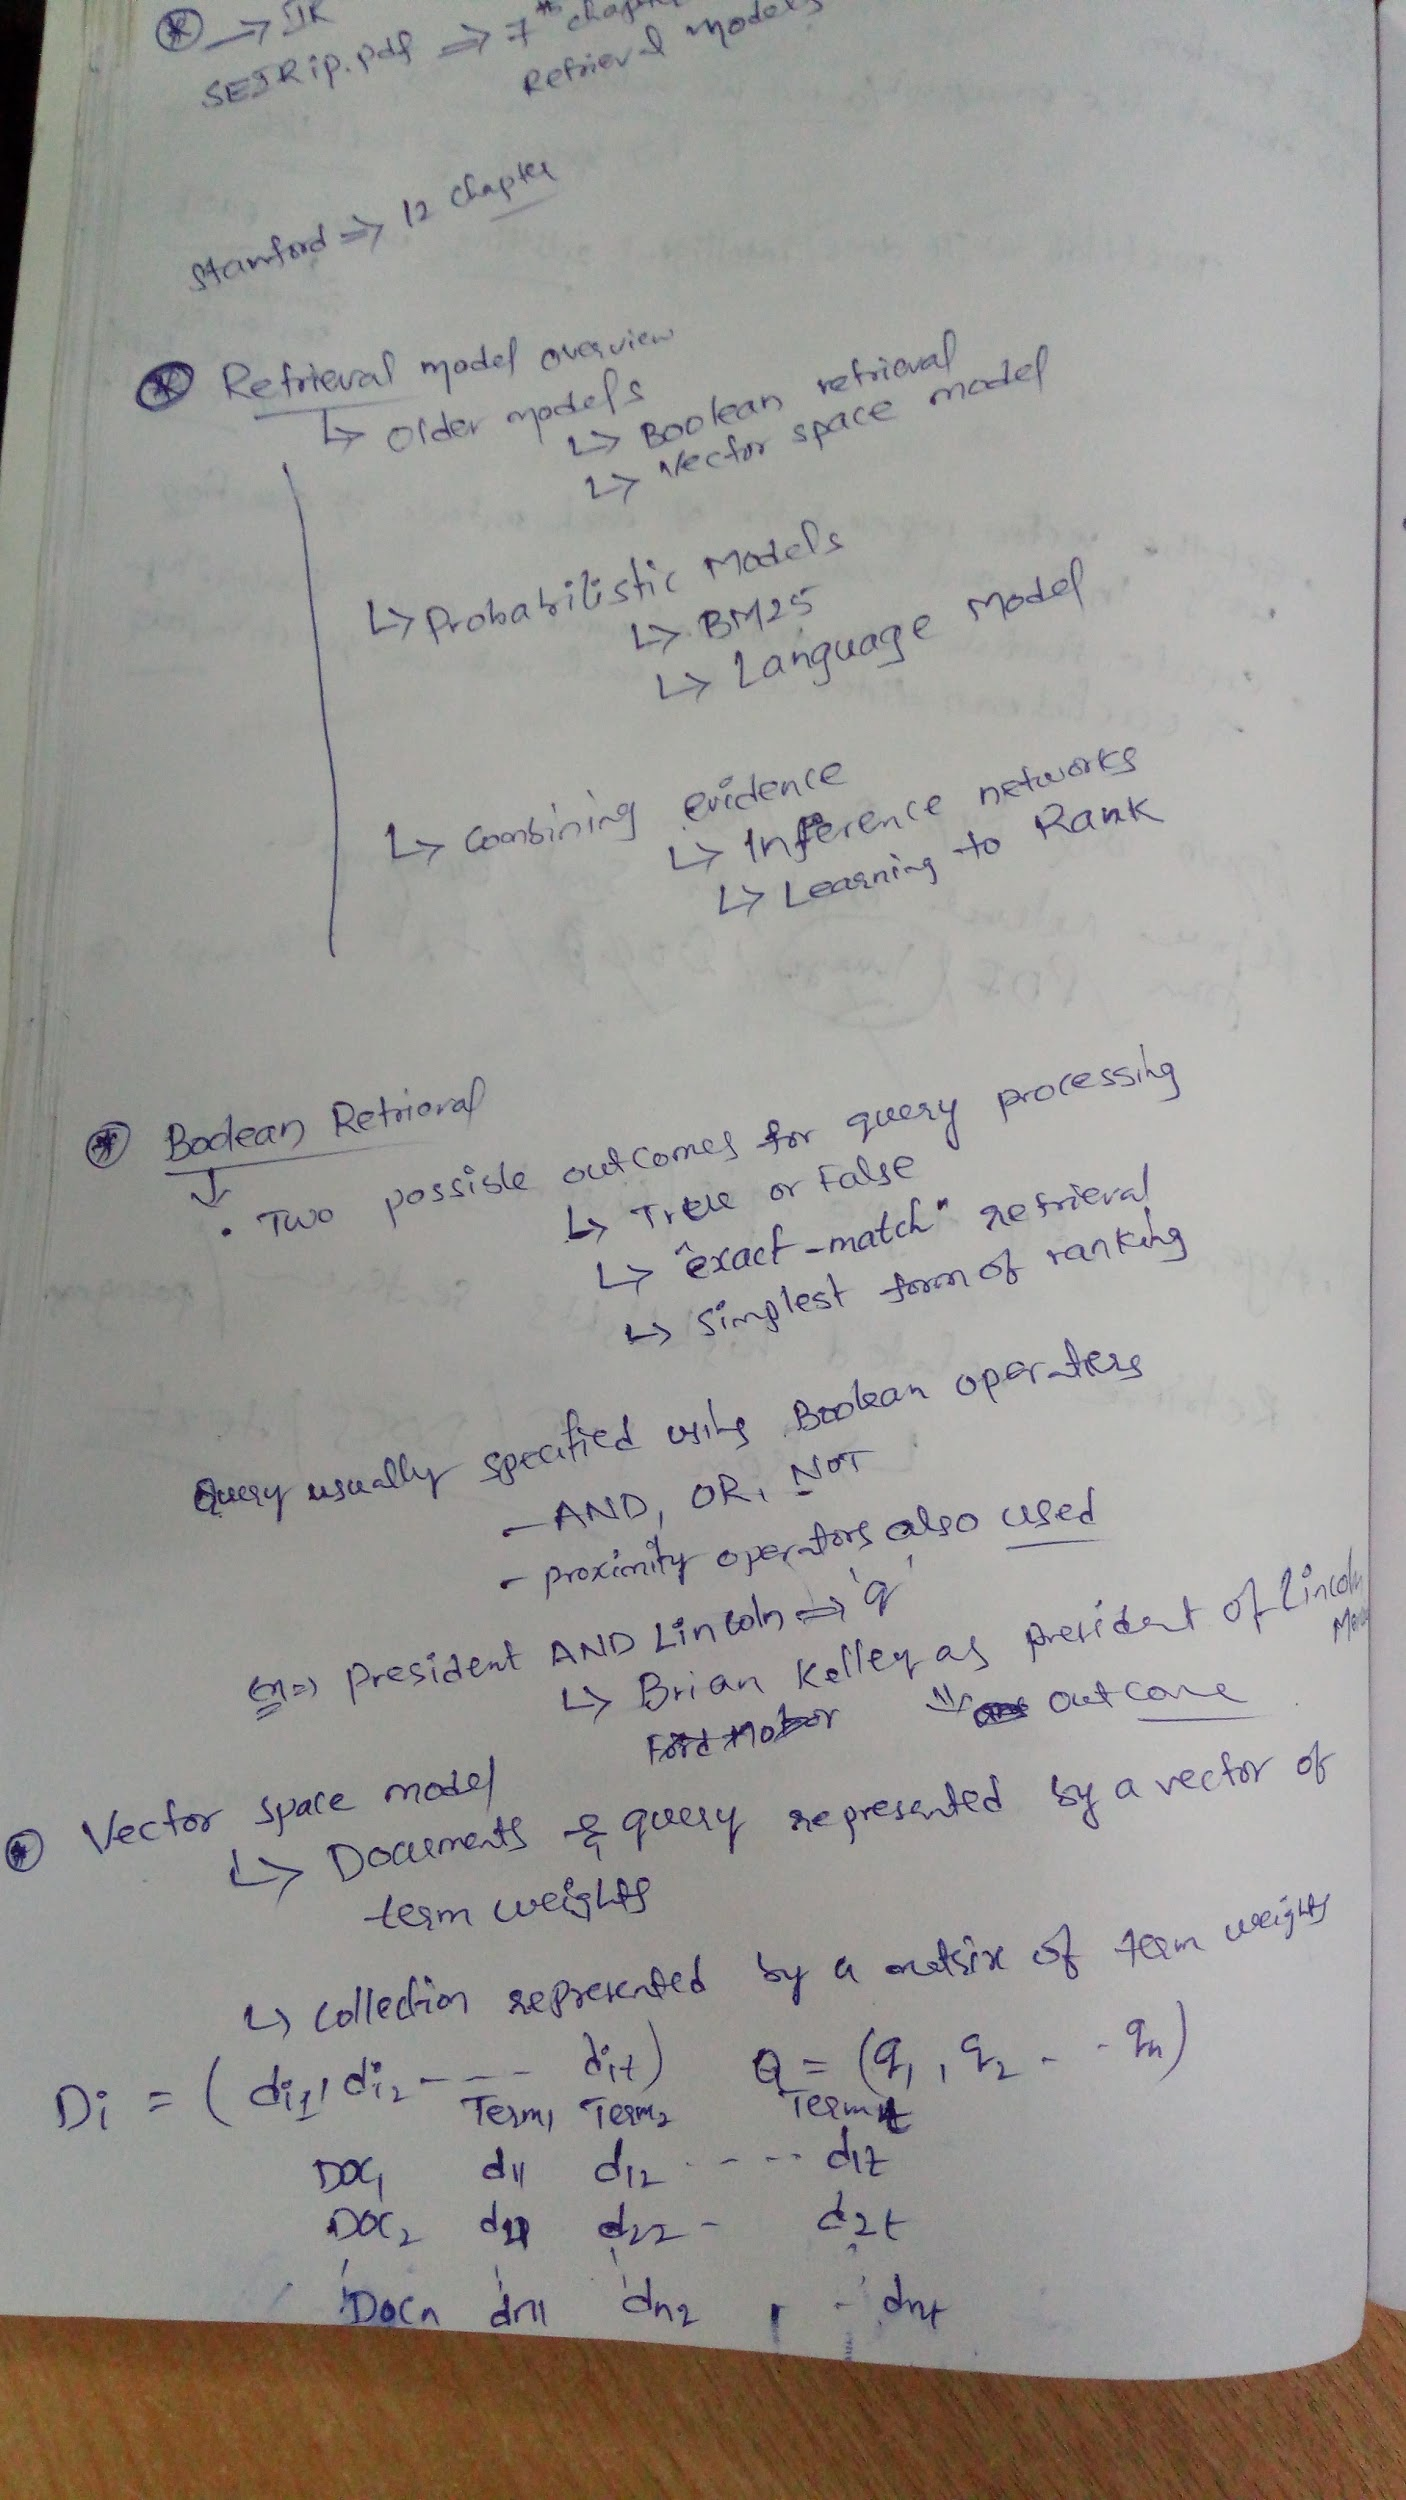 → IR
SEIRip.pdf ⇒ 7th chapter
Retrieval models
Stamford ⇒ 12 chapter
Retrieval model overview
↳ Older models
↳ Boolean retrieval
↳ Vector space model
↳ Probabilistic Models
↳ BM25
↳ Language Model
↳ Combining evidence
↳ Inference networks
↳ Learning to Rank
Boolean Retrieval
• Two possible outcomes for query processing
↳ True or False
↳ "exact-match" retrieval
↳ simplest form of ranking
Query usually specified using Boolean operators
- AND, OR, NOT
- proximity operators also used
Ex => President AND Lincoln => 'q'
↳ Brian Kelley as president of Lincoln
Ford Motor outcome
Vector space model
↳ Documents & query represented by a vector of
term weights
↳ collection represented by a matrix of term weights
Di = (di1, di2 - - - - dit) Q = (q1, q2 - - qn)
Term1 Term2 Termt
DOC1 d11 d12 - - - - d1t
DOC2 d21 d22 - d2t
Docn dn1 dn2 - dnt